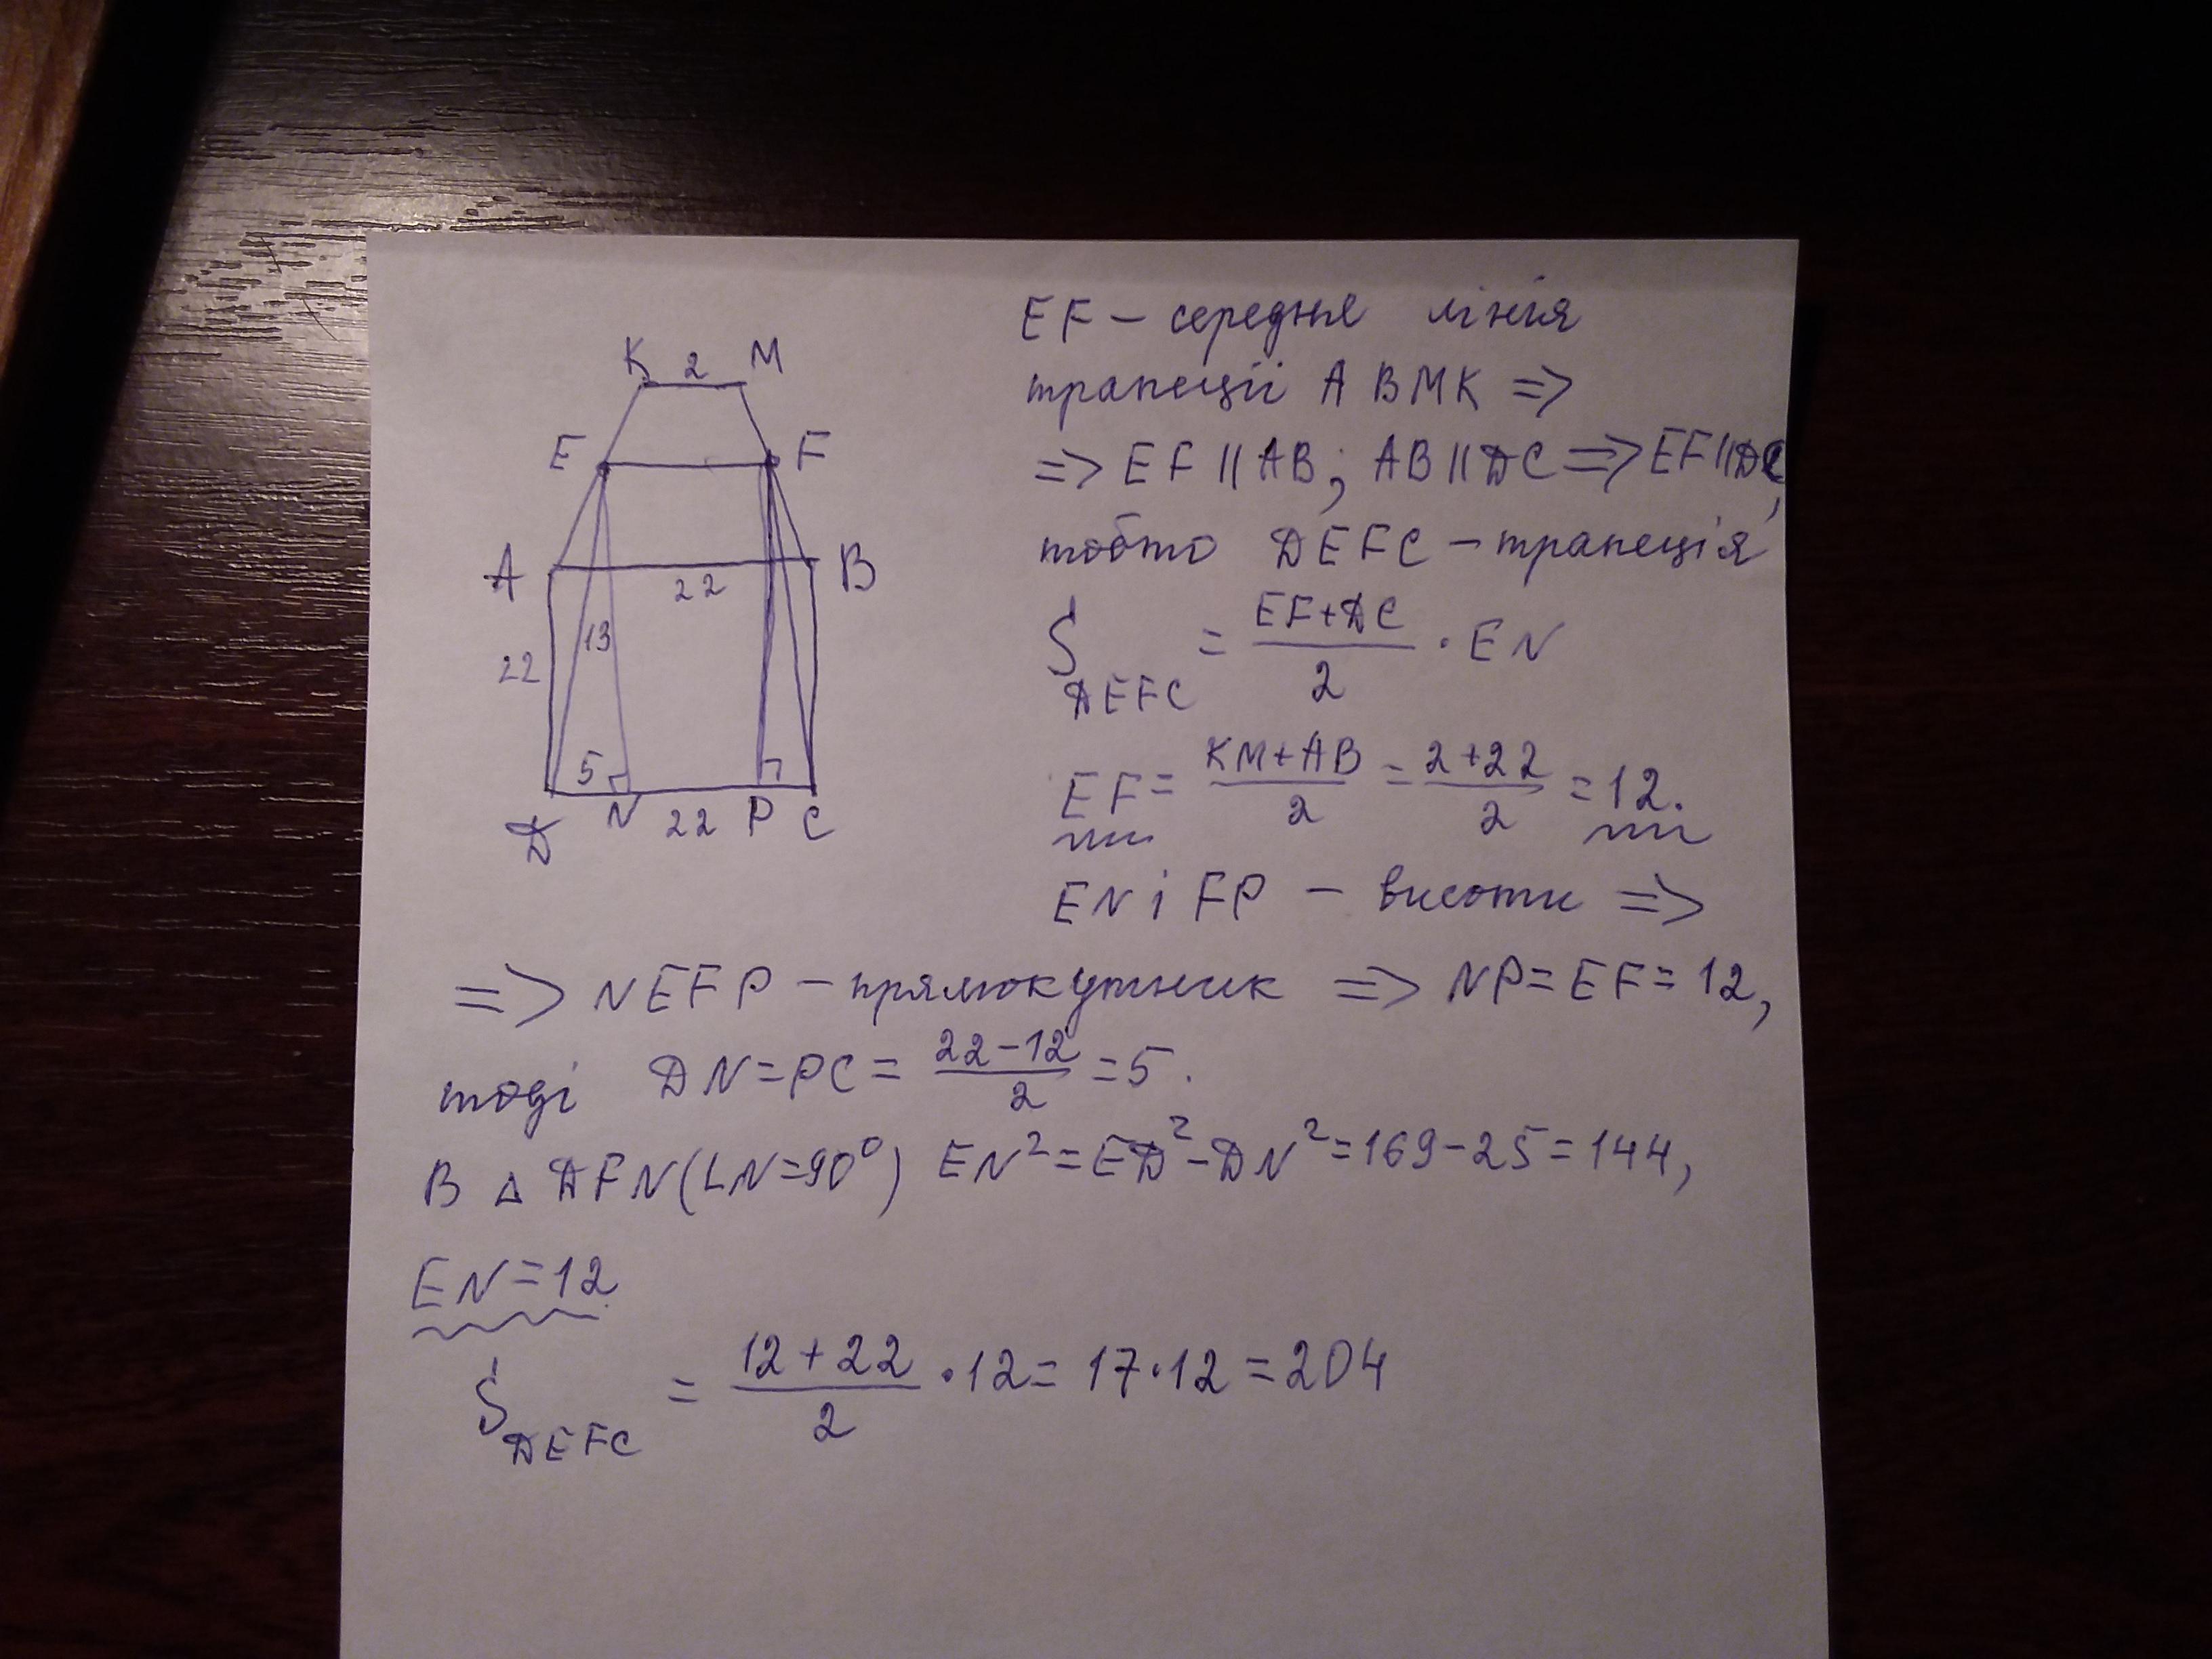 K 2 M
E F
A B
22
13
22
5
D N 22 P C
EF – середня лінія
трапеції ABMK =>
=> EF || AB; AB || DC => EF || DC,
тобто DEFC – трапеція
S_DEFC = (EF+DC)/2 · EN
EF = (KM+AB)/2 = (2+22)/2 = 12.
EN і FP – висоти =>
=> NEFP – прямокутник => NP = EF = 12,
тоді DN = PC = (22-12)/2 = 5.
В △ DFN (∠N=90°) EN² = ED² - DN² = 169 - 25 = 144,
EN = 12
S_DEFC = (12+22)/2 · 12 = 17 · 12 = 204